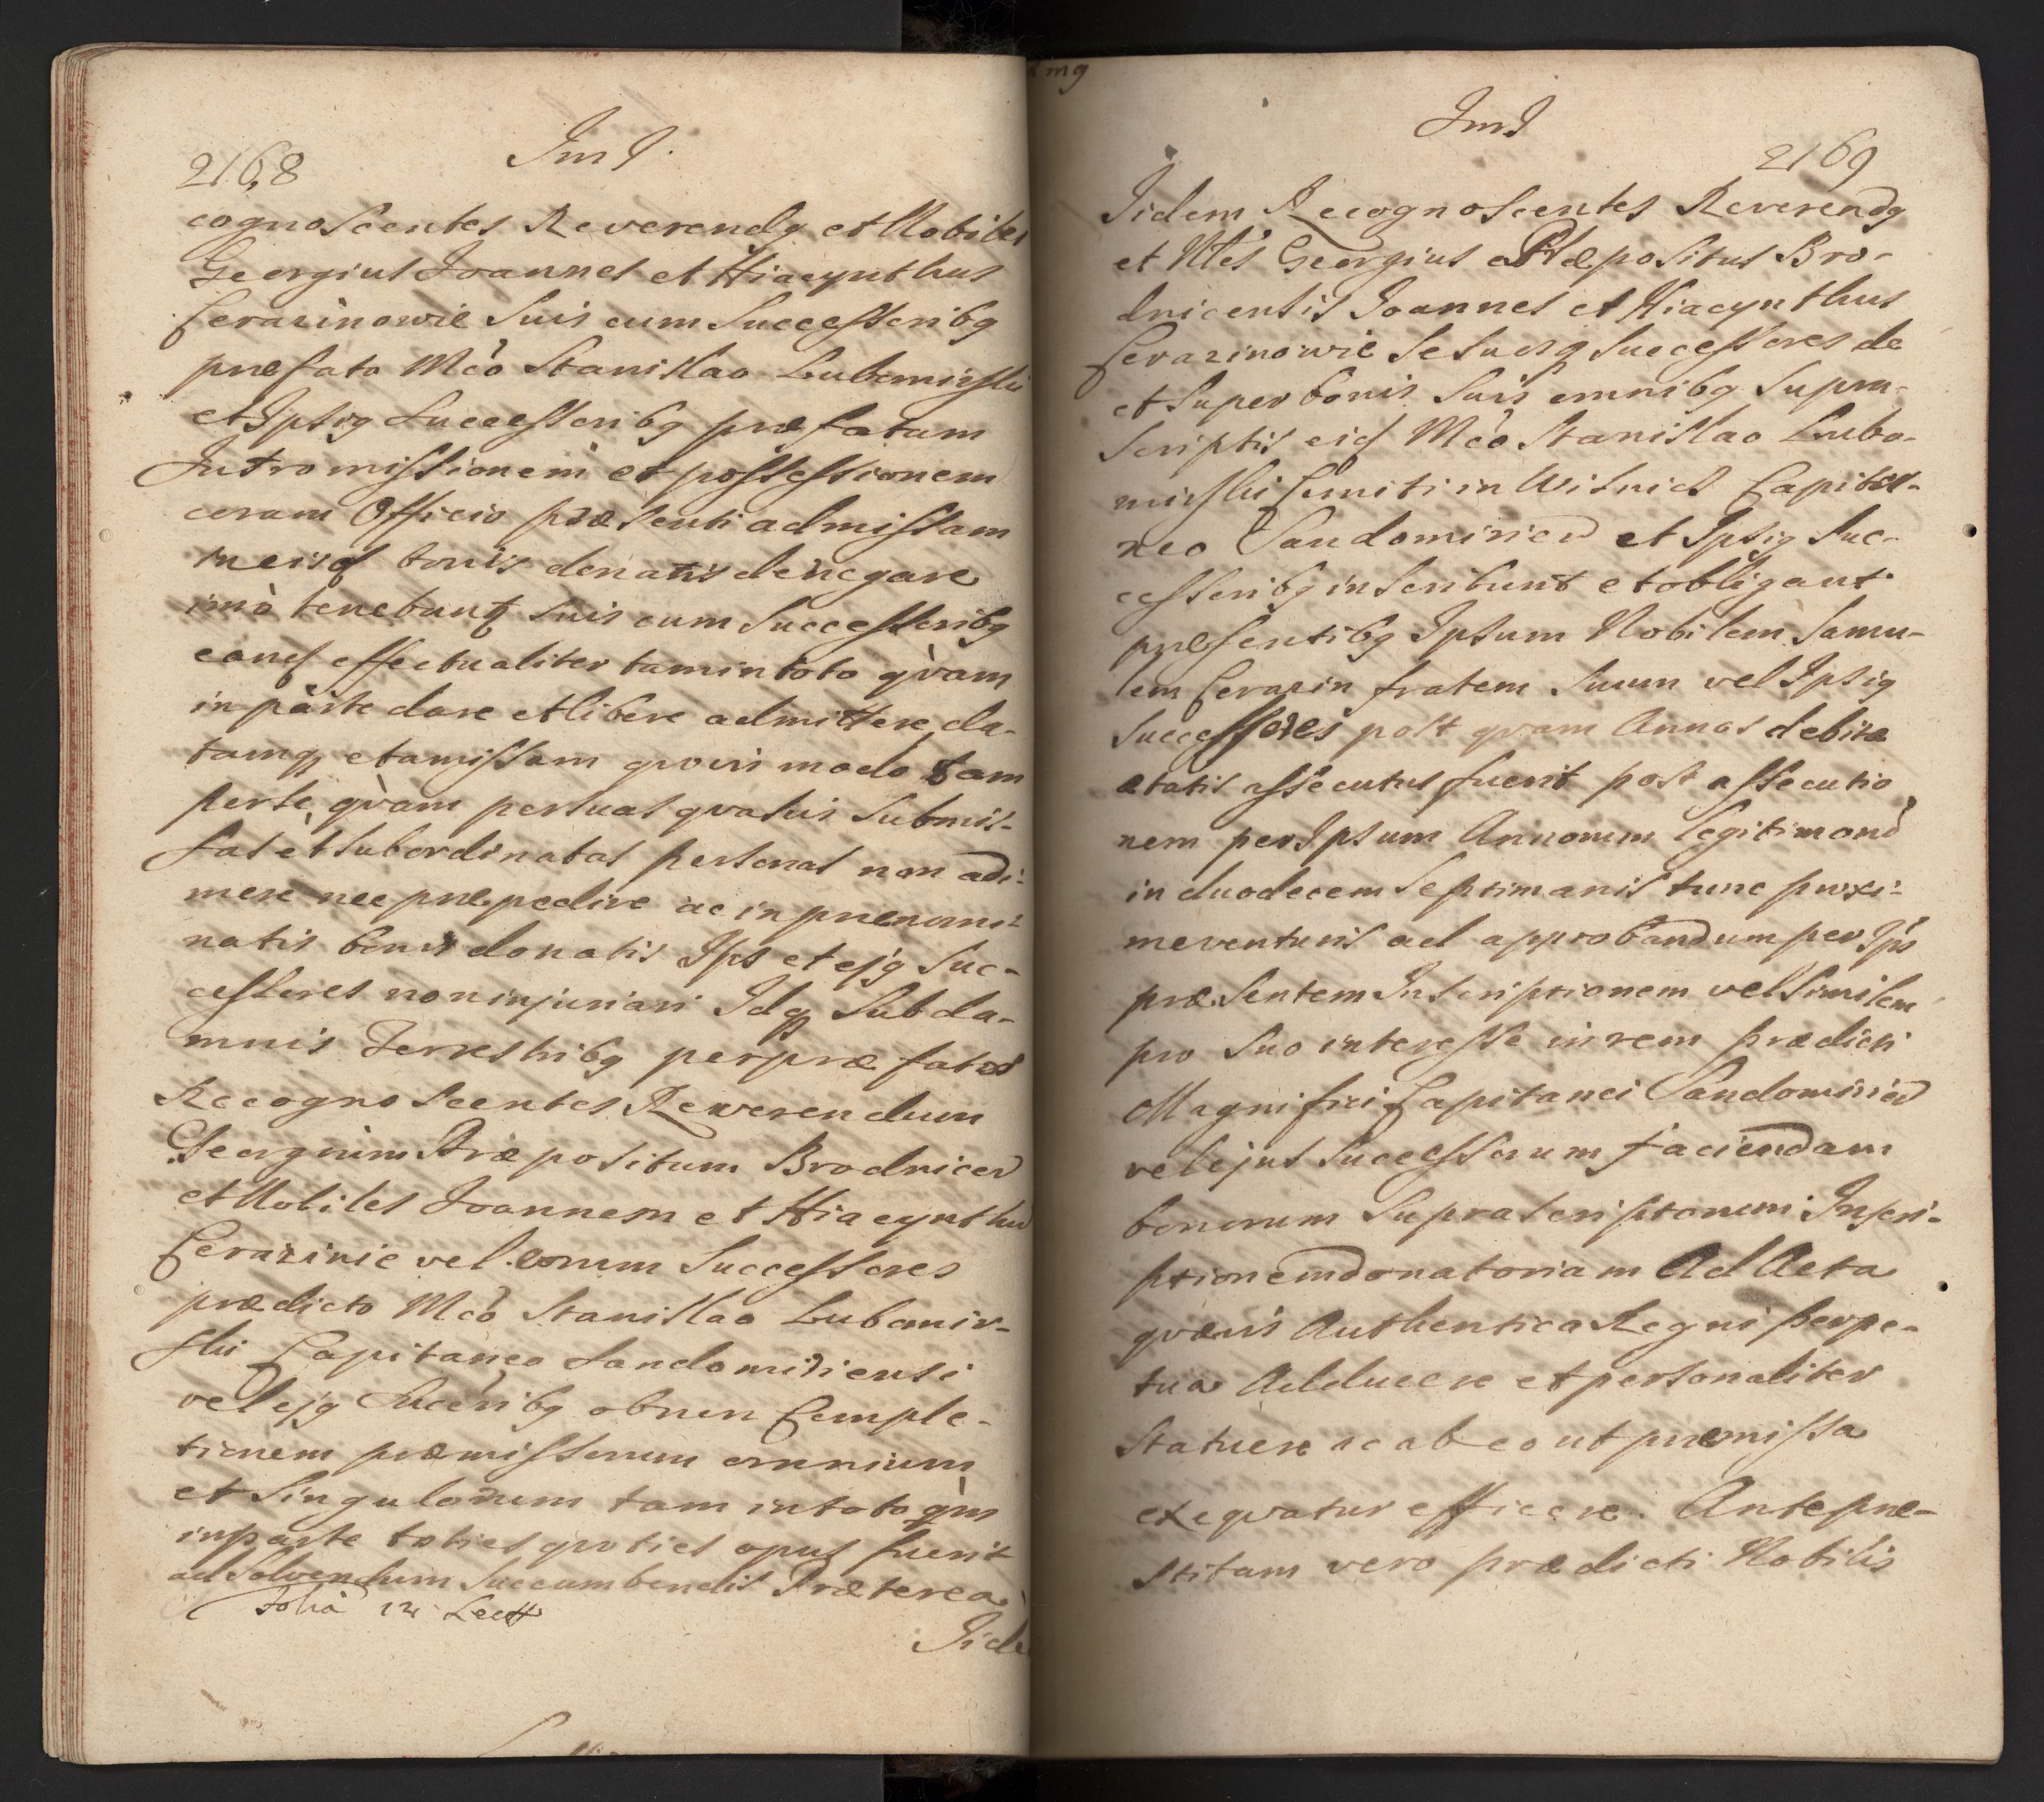 2168
ImJ.
cognoscentes Reverendq et Nobiles
Georgius Joannes et Hiacynthus
Cerazinowie suis cum Successoribq
præfato Mco Stanislao Lubomirski
et Ipsiq Successoribq præfatam
Intromissionem et possessionem
coram Officio præsenti admissam
in eisd bonis donatis denegare
imò tenebunt suis cum Successoribq
eand effectualiter tam in toto qvam
in parte dare et libere admittere da-
tamq et amissam qvovis modo tam
per se qvam per suas qvasvis submis-
sas et subordinatas personas non adi-
mere nec præpedire ac in prænomi-
natis bonis donatis Ips et ejq Suc-
cessores non injuriari Idq sub da-
mnis Terrestribq per præfatos
Recognoscentes Reverendum
Georgium Præpositum Brodnicen
et Nobiles Joannem et Hiacynthum
Cerazinie vel eorum Successores
prædicto Mco Stanislao Lubomir-
ski Capitaneo Sandomiriensi
vel ejq Succribq ob non Comple-
tionem præmissorum omnium
et singulorum tam in toto qm
in parte toties qvoties opus fuerit
ad solvendum succumbendis Præterea
folia 12 Lectt
Iide
mq
ImJ
2169
Iidem Recognoscentes Reverendq
et Nles Georgius Præpositus Bro-
dnicensis Joannes et Hiacynthus
Cerazinowie se suosq successores de
et super bonis suis omnibq supra-
scriptis eid Mco Stanislao Lubo-
mirski Comiti in Wisnicz Capita-
neo Sandomirien et Ipsiq Suc-
cessoribq inscribunt et obligant
præsentibq Ipsum Nobilem Samu-
lem Cerazin fratem suum vel Ipsiq
Successores post qvam Annos debitæ
ætatis assecutus fuerit post assecutio
nem per Ipsum Annorum legitimorū
in duodecem septimanis tunc proxi-
me venturis ad approbandum per Ips
præsentem Inscriptionem vel similem
pro suo interesse in rem prædicti
Magnifici Capitanei Sandomirien
vel ejus Successorum faciendam
bonorum suprascriptorum Inscri-
ptionem donatoriam Ad Acta
qvævis Authentica Regni perpe-
tua Adducere et personaliter
statuere ac ab eo ut præmissa
exeqvatur efficere. Ante præ-
stitam vero prædicti Nobilis